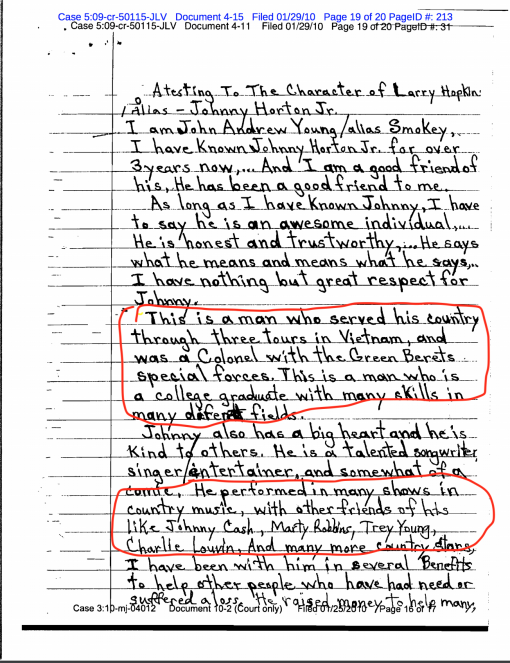 Case 5:09-cr-50115-JLV Document 4-15 Filed 01/29/10 Page 19 of 20 PageID #: 213
Case 5:09-cr-50115-JLV Document 4-11 Filed 01/29/10 Page 19 of 20 PageID #: 31
Atesting To The Character of Larry Hopkin
/Alias - Johnny Horton Jr.
I am John Andrew Young/alias Smokey,.
I have Known Johnny Horton Jr. for over
3 years now,... And I am a good friend of
his, He has been a good friend to me.
As long as I have Known Johnny, I have
to say he is an awesome individual,...
He is honest and trustworthy,... He says
what he means and means what he says,..
I have nothing but great respect for
Johnny.
This is a man who served his country
through three tours in Vietnam, and
was a Colonel with the Green Berets
special forces. This is a man who is
a college graduate with many skills in
many diferent fields.
Johnny also has a big heart and he is
Kind to others. He is a talented songwriter
singer/entertainer, and somewhat of a
comic, He performed in many shows in
country music, with other friends of his
like Johnny Cash, Marty Robbins, Trey Young,
Charlie Louvin, And many more country stars,
I have been with him in several Benefits
to help other people who have had need or
suffered a loss. He raised money to help many,
Case 3:10-mj-04012 Document 10-2 (Court only) Filed 01/25/2010 Page 16 of 17